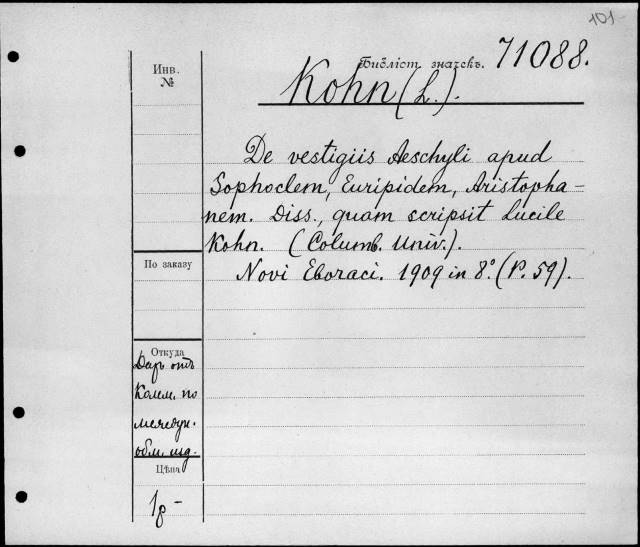 101
Инв.
№
Библіот. значекъ. 71088.
Kohn (L.).
De vestigiis Aeschyli apud
Sophoclem, Euripidem, Aristopha-
nem. Diss., quam scripsit Lucile
Kohn. (Columb. Univ.).
Novi Eboraci. 1909 in 8°. (P. 59).
По заказу
Откуда
Даръ отъ
Комм. по
междун.
обм. изд.
Цѣна
1р -